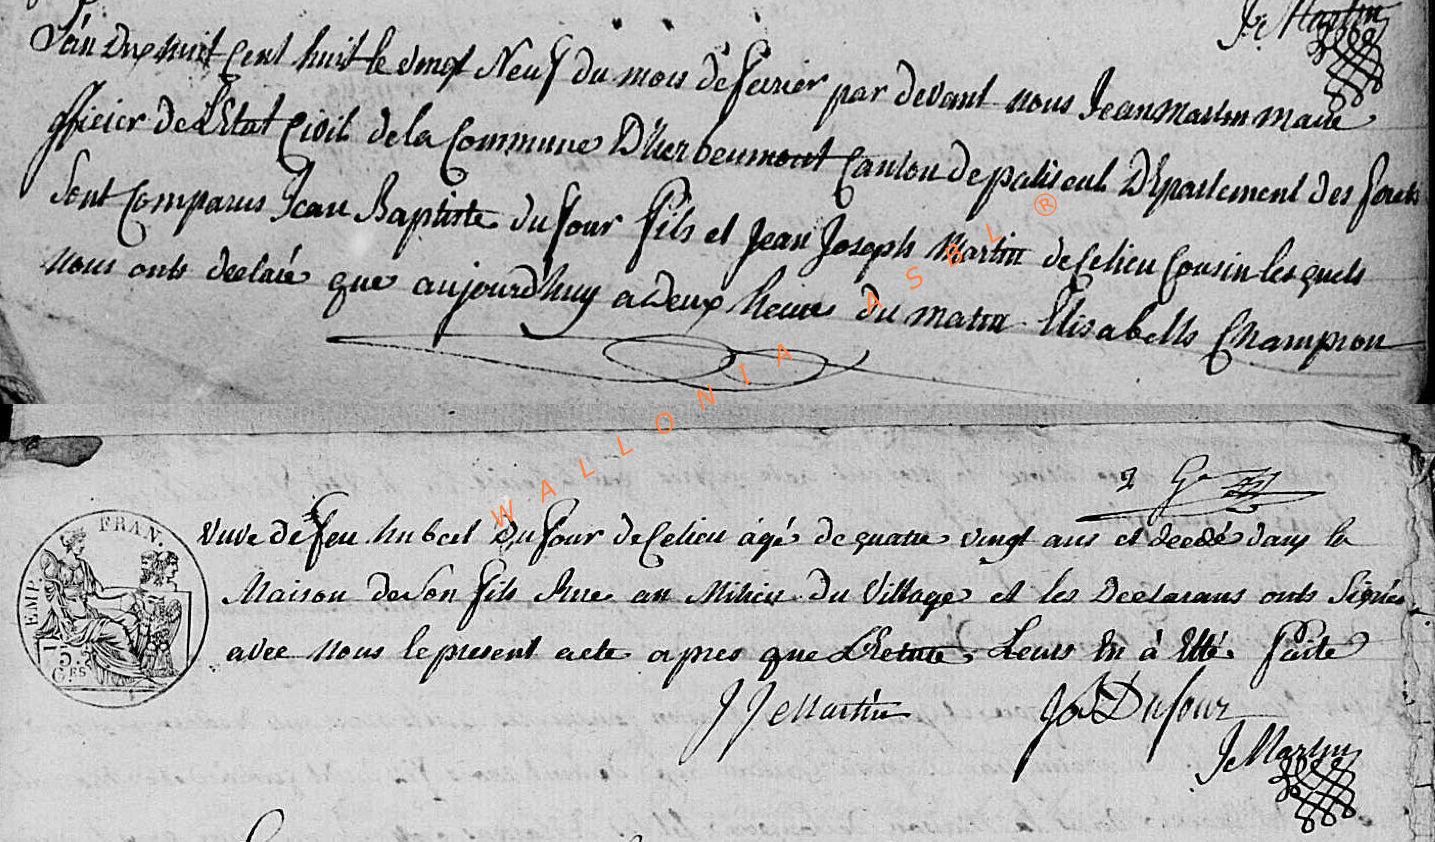 Je Martin
L'an dix huit Cent huit le vingt Neuf du mois de fevrier par devant nous Jean Martin maire
officier de L'Etat Civil de la Commune D'herbeumont Canton de paliseul Département des forets
Sont Comparus Jean Baptiste du four fils et Jean Joseph Martin de Celieu Cousin lesquels
nous onts declaré que aujourd'huy a deux heures du matin Elisabeth Champion
WALLONIA ASBL ®
2 
vuve de feu hubert Du four de Celieu agé de quatre vingt ans et decedé dans la
Maison de Son fils Rue au Milieu du Village et les Declarans onts Signés
avec nous le present acte apres que Lecture Leurs En à Etté faite
EMP. FRAN.
JJe Martin
Jb Dufour
Je Martin